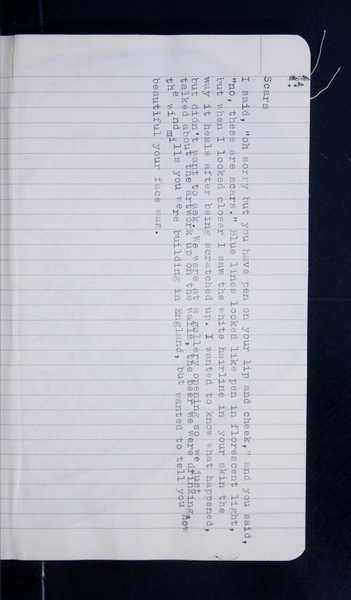 44.
Scars
I said, "oh sorry but you have pen on your lip and cheek," and you said,
"no, these are scars." Blue lines looked like pen in florescent light,
but when I looked closer I saw the white hairline in your skin the
way it heals after being scratched up. I wanted to know what happened,
but didn't want to ask. We were at a gallery opening so we just
talked about the artwork up on the walls, the beer we were drinking,
the wind mills you were building in England, but wanted to tell you how
beautiful your face was.